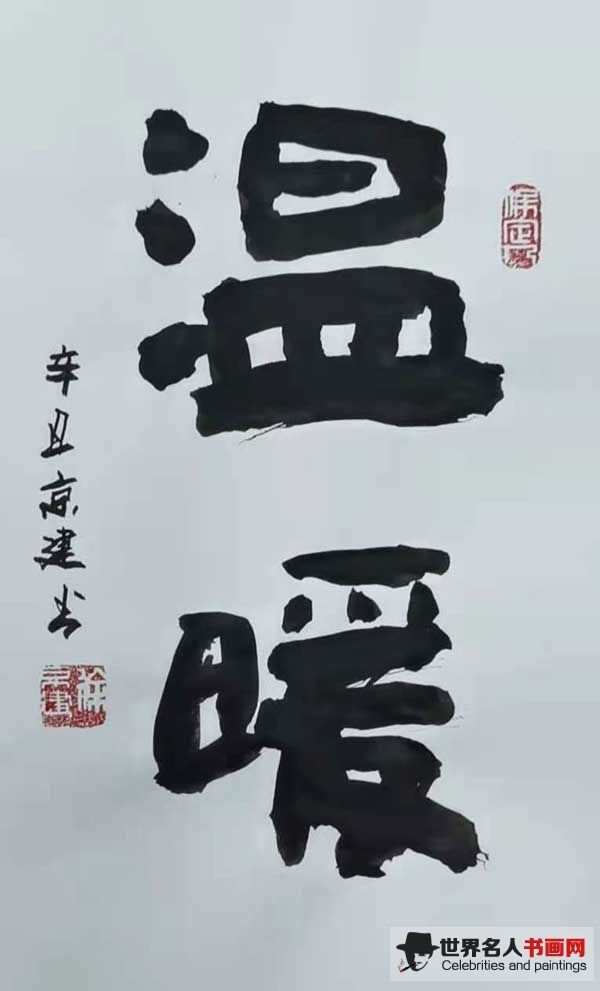 温暖
辛丑京建书
世界名人书画网
Celebrities and paintings